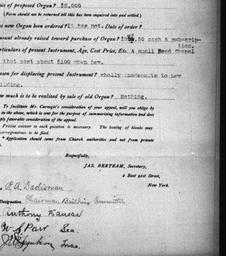 of proposed Organ? $2,000
Form should not be returned till this has been inquired into and settled.
new Organ been ordered? it has not. Date of order?
amount already raised toward purchase of Organ? .50 cash & subscrip-
tion.
articulars of present Instrument, Age, Cost Price, Etc. A small Reed Chapel
that cost about $100 when new.
son for displacing present Instrument? wholly inadequate to new
building.
much is to be realized by sale of old Organ? Nothing.
To facilitate Mr. Carnegie's consideration of your appeal, will you oblige by
in the above, which is used for the purpose of summarizing information and does
imply favorable consideration of the appeal.
Precise answer to each question is necessary. The issuing of blanks may
correspondence to be filed.
Application should come from Church authorities and not from private
Respectfully,
JAS. BERTRAM, Secretary,
2 East 91st Street,
New York.
Designation Chairman Building Committee
Anthony
W. J. Parr Sec.
Treas.